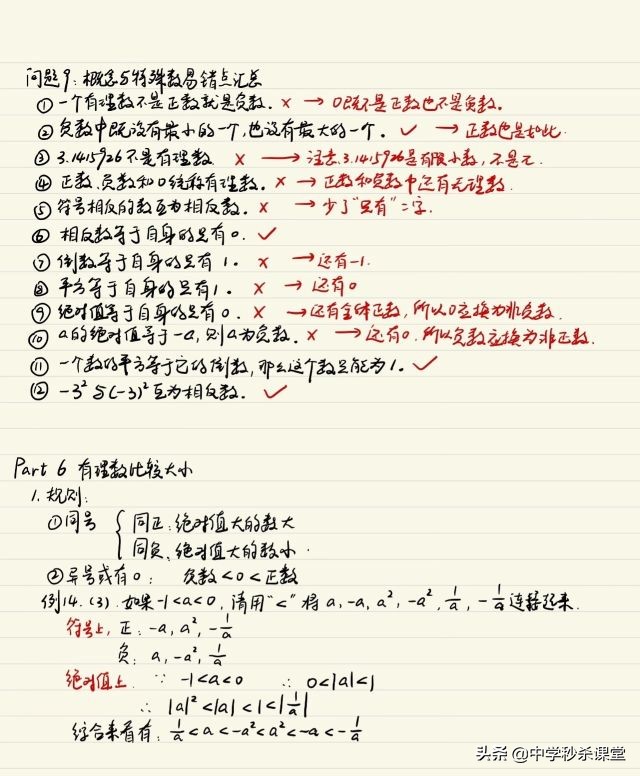 问题9:概念与特殊数易错点汇总
① 一个有理数不是正数就是负数. × → 0既不是正数也不是负数.
② 负数中既没有最小的一个,也没有最大的一个. ✓ → 正数也是如此.
③ 3.1415926不是有理数. × → 注意3.1415926是有限小数,不是π.
④ 正数、负数和0统称有理数. × → 正数和负数中还有无理数.
⑤ 符号相反的数互为相反数. × → 少了“只有”二字.
⑥ 相反数等于自身的只有0. ✓
⑦ 倒数等于自身的只有1. × → 还有-1.
⑧ 平方等于自身的只有1. × → 还有0
⑨ 绝对值等于自身的只有0. × → 还有全体正数,所以0应换为非负数.
⑩ a的绝对值等于-a,则a为负数. × → 还有0,所以负数应换为非正数.
⑪ 一个数的平方等于它的倒数,那么这个数只能为1. ✓
⑫ -3²与(-3)²互为相反数. ✓
Part 6 有理数比较大小
1.规则:
①同号 { 同正:绝对值大的数大
同负:绝对值大的数小.
②异号或有0: 负数<0<正数
例14.(3).如果-1<a<0,请用“<”将a,-a,a²,-a²,1/a,-1/a连接起来.
符号上,正:-a,a²,-1/a
负:a,-a²,1/a
绝对值上 ∵ -1<a<0 ∴ 0<|a|<1
∴ |a|²<|a|<1<|1/a|
综合来看有:1/a<a<-a²<a²<-a<-1/a
头条 @中学秒杀课堂